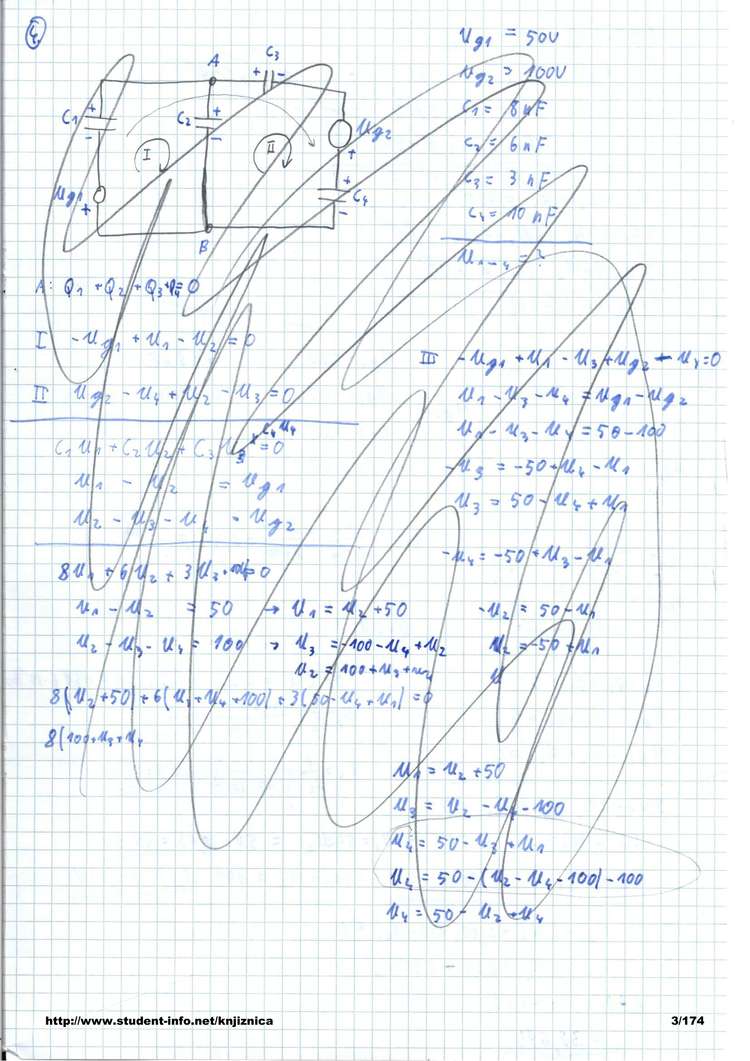 4
A
C3
+ -
Ug1 = 50V
Ug2 = 100V
C1 = 8 nF
C2 = 6 nF
C3 = 3 nF
C4 = 10 nF
U1-4 = ?
C1
+
-
C2
+
-
I
II
Ug2
+
+
C4
-
Ug1
+
B
A: Q1 + Q2 + Q3 + Q4 = 0
I -Ug1 + U1 - U2 = 0
II Ug2 - U4 + U2 - U3 = 0
C1U1 + C2U2 + C3U3 + C4U4 = 0
U1 - U2 = Ug1
U2 - U3 - U4 = Ug2
8U1 + 6U2 + 3U3 = 0
U1 - U2 = 50 → U1 = U2 + 50
U2 - U3 - U4 = 100 → U3 = -100 - U4 + U2
U2 = 100 + U3 + U2
8(U2 + 50) + 6(U3 + U4 + 100) + 3(50 - U4 + U1) = 0
8(100 + U3 + U4
III -Ug1 + U1 - U3 + Ug2 - U4 = 0
U1 - U3 - U4 = Ug1 - Ug2
U1 - U3 - U4 = 50 - 100
-U3 = -50 + U4 - U1
U3 = 50 - U4 + U1
-U4 = -50 + U3 - U1
-U2 = 50 - U1
U2 = -50 + U1
U
U1 = U2 + 50
U3 = U2 - U4 - 100
U4 = 50 - U3 + U1
U4 = 50 - (U2 - U4 - 100) - 100
U4 = 50 - U2 + U4
http://www.student-info.net/knjiznica
3/174